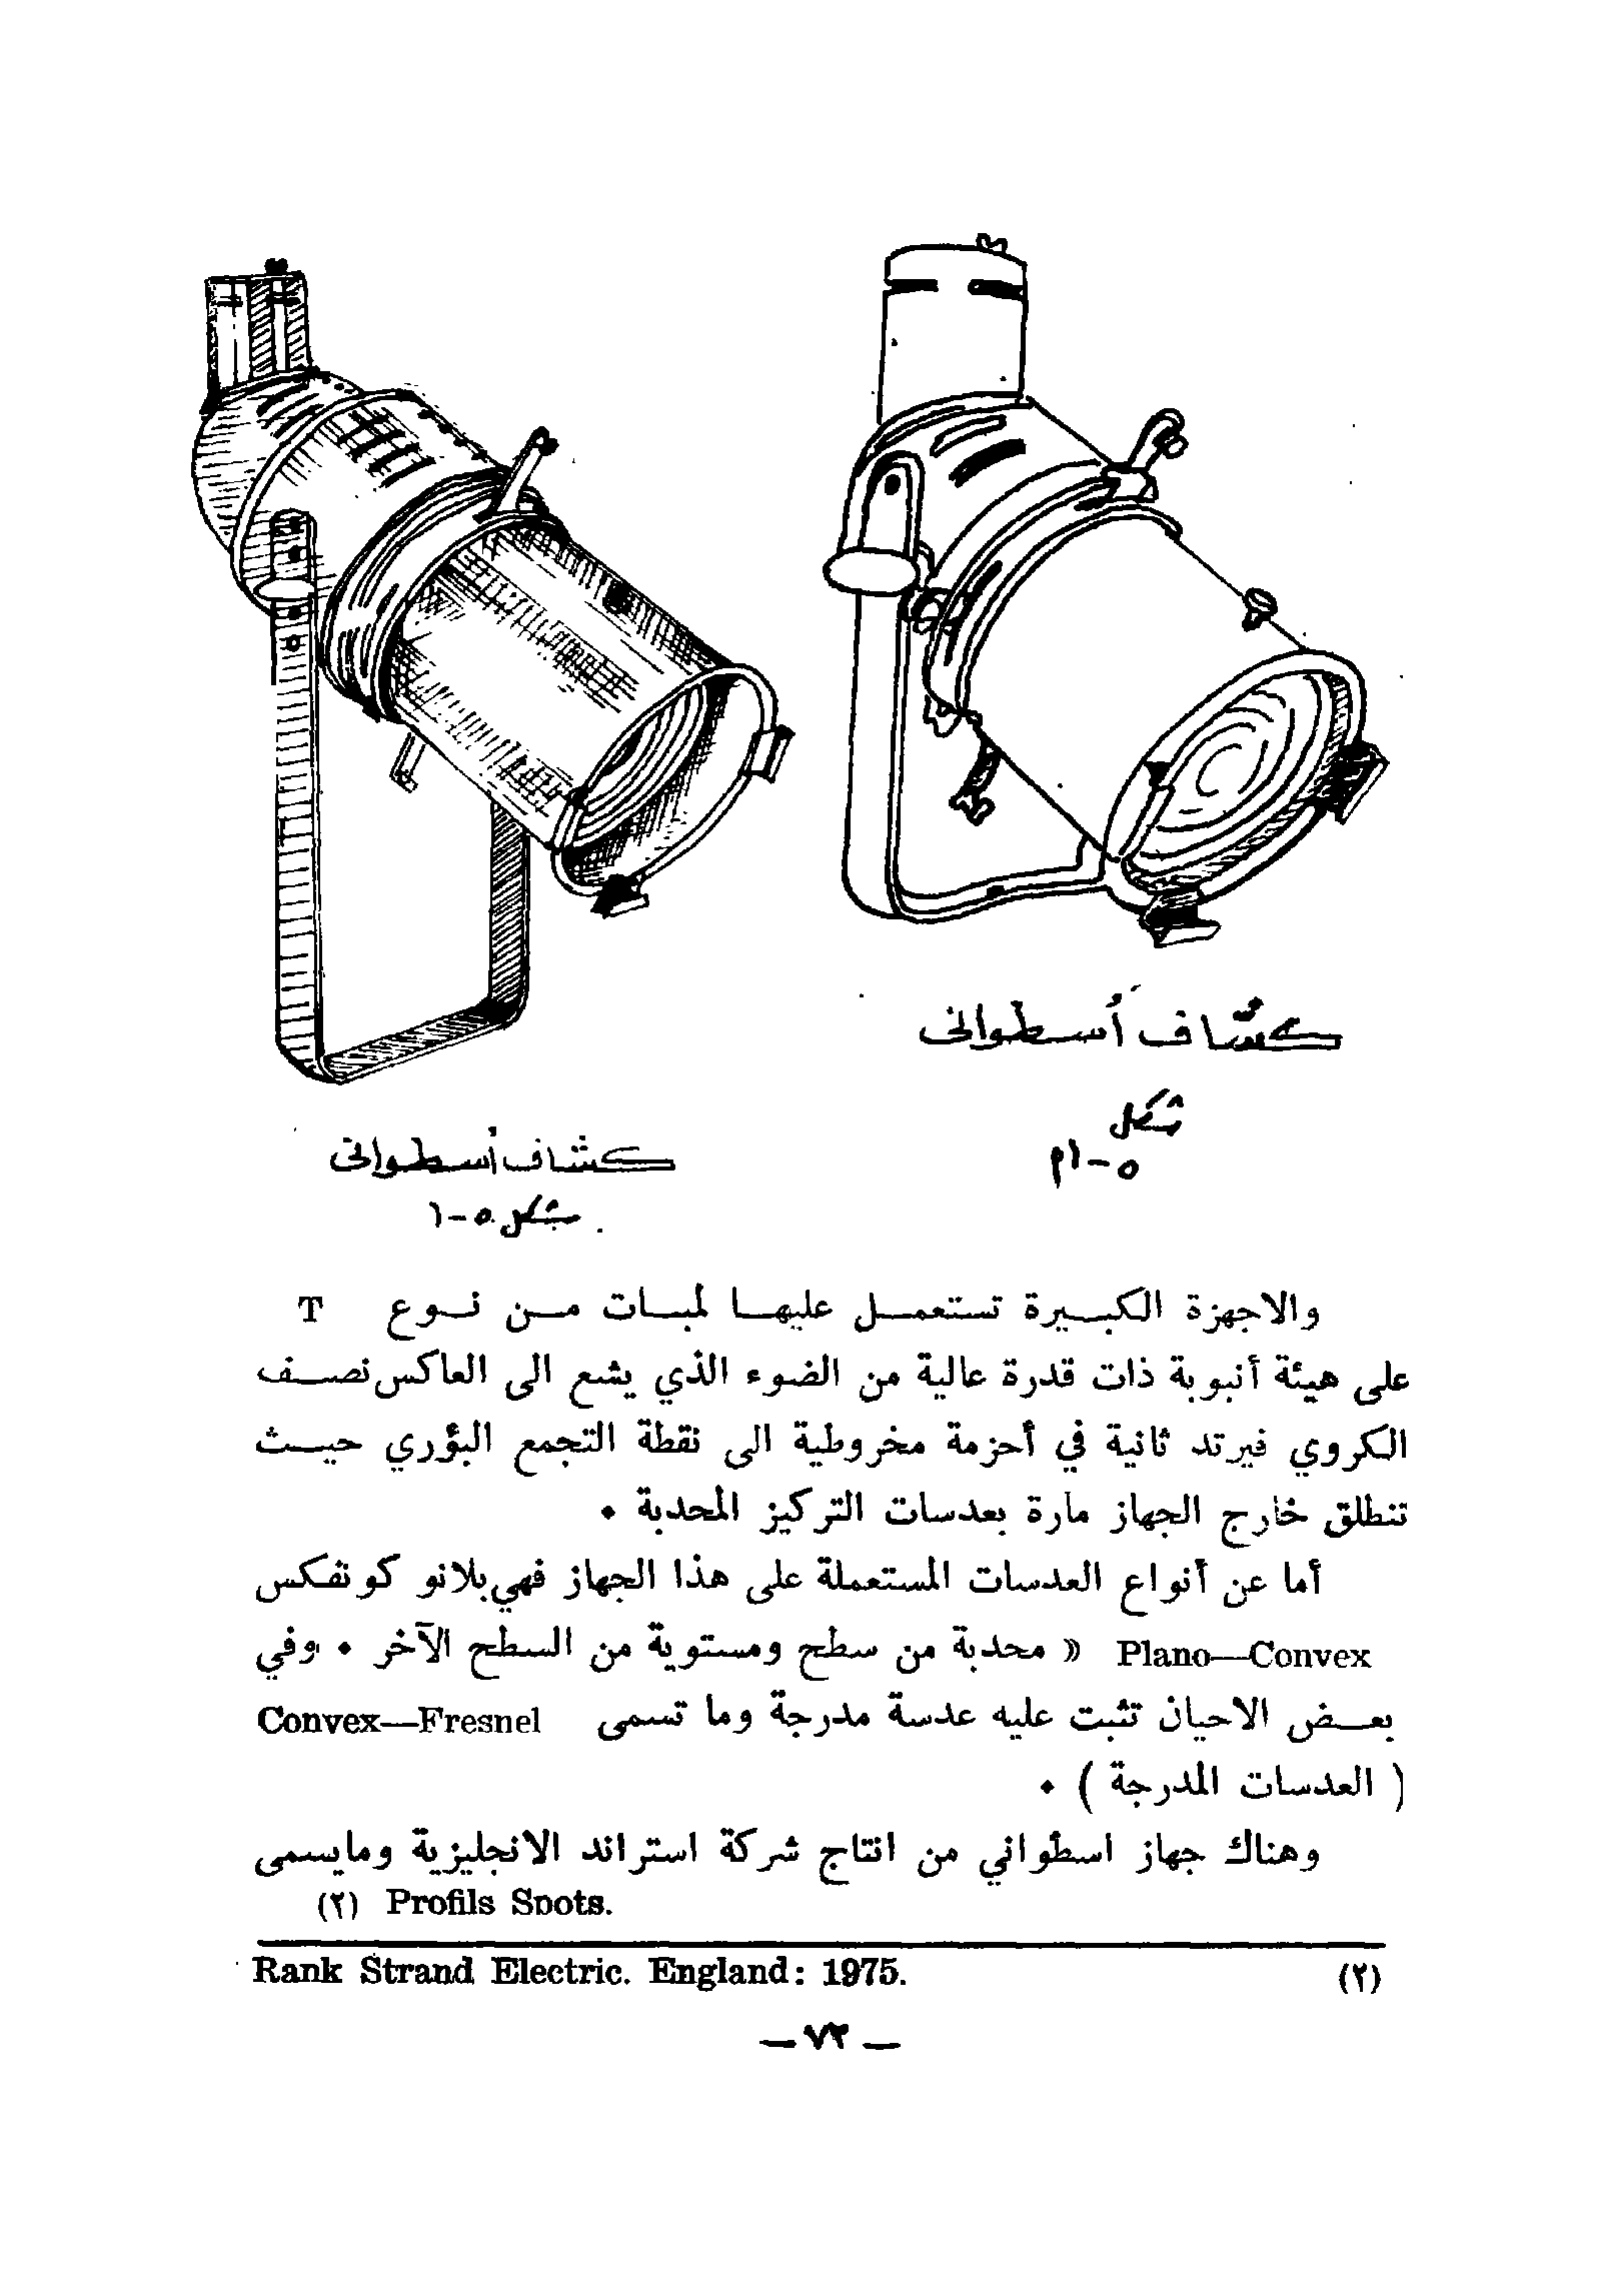 كشاف أسطوانى
شكل
٥-١م
كشاف أسطوانى
شكل ٥-١
والاجهزة الكبيرة تستعمل عليها لمبات من نوع T
على هيئة أنبوبة ذات قدرة عالية من الضوء الذي يشع الى العاكس نصف
الكروي فيرتد ثانية في أحزمة مخروطية الى نقطة التجمع البؤري حيث
تنطلق خارج الجهاز مارة بعدسات التركيز المحدبة .
أما عن أنواع العدسات المستعملة على هذا الجهاز فهي بلانو كونفكس
Plano—Convex « محدبة من سطح ومستوية من السطح الآخر . وفي
بعض الاحيان تثبت عليه عدسة مدرجة وما تسمى Convex—Fresnel
( العدسات المدرجة ) .
وهناك جهاز اسطواني من انتاج شركة استراند الانجليزية ومايسمى
(٢) Profils Spots.
(٢) Rank Strand Electric. England: 1975.
— ٧٣ —